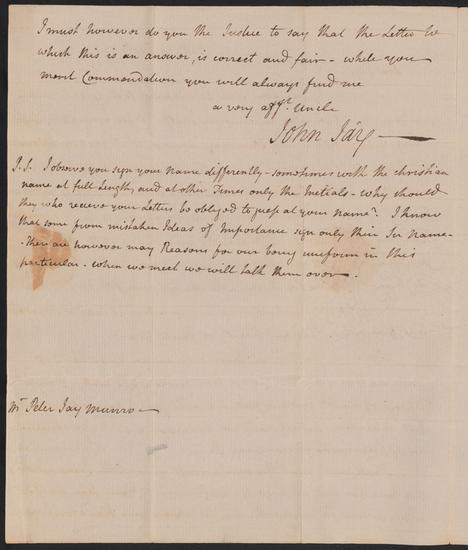 I must however do you the Justice to say that the Letter to
which this is an answer, is correct and fair - while you
merit Commendation you will always find me
a very afft. Uncle
John Jay
P.S. I observe you sign your name differently - sometimes with the christian
name at full Length, and at other Times only the Initials - why should
they who receive your Letters be obliged to guess at your name? I know
that some from mistaken Ideas of Importance sign only their Sir Name -
- There are however many Reasons for our being uniform in this
particular - when we meet we will talk them over.
Mr Peter Jay Munro